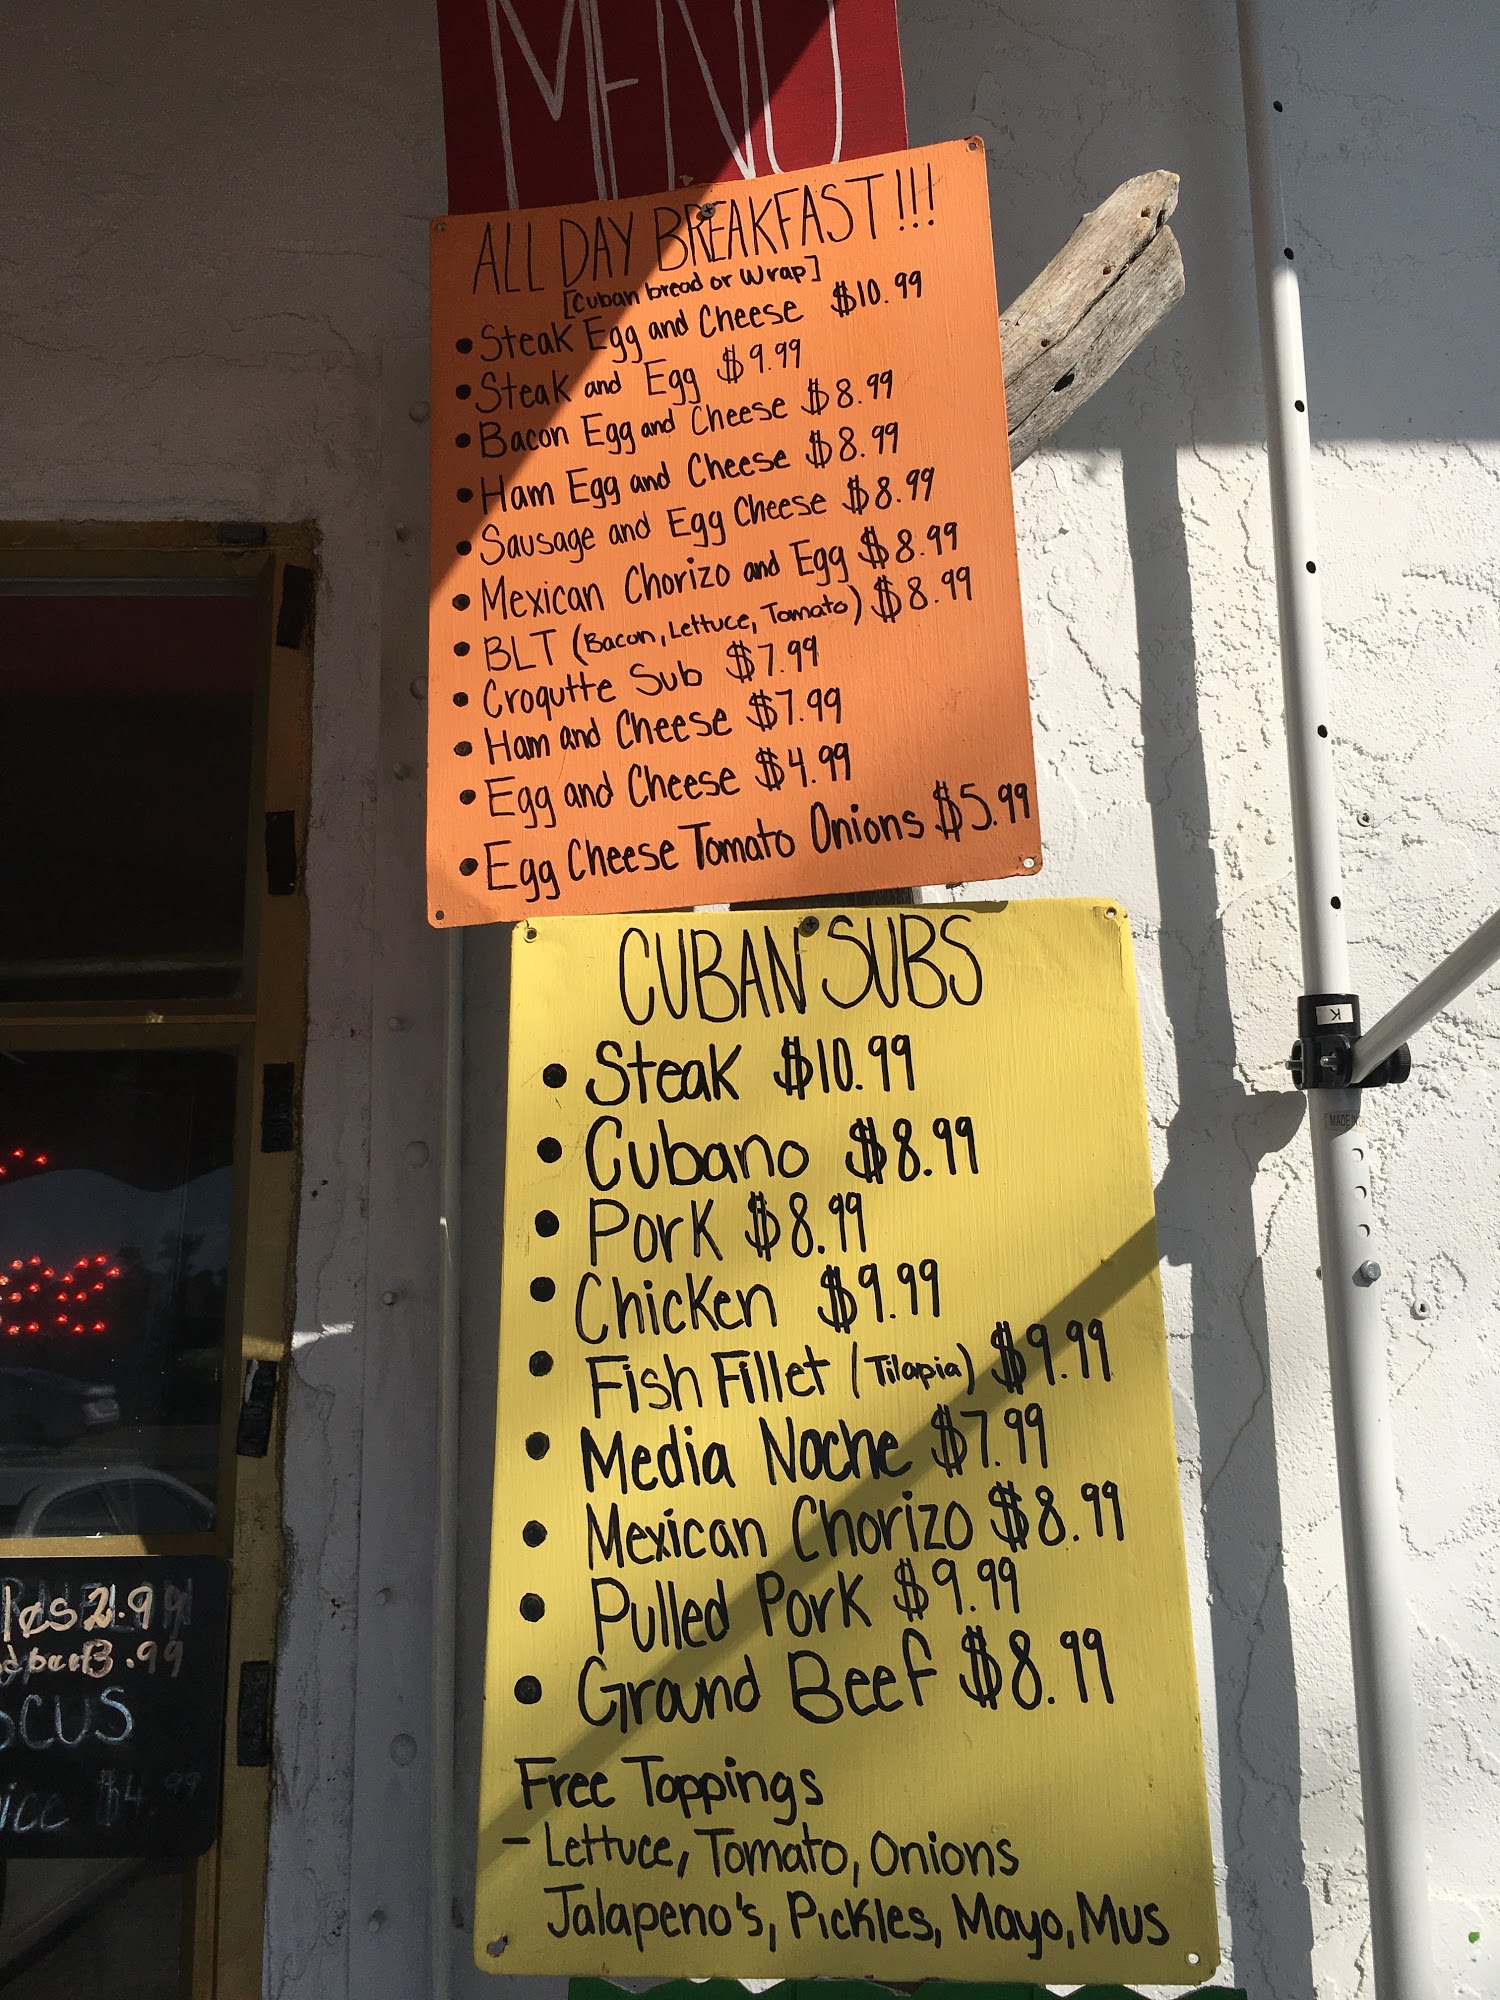 MENU
ALL DAY BREAKFAST!!!
[Cuban bread or Wrap]
• Steak Egg and Cheese $10.99
• Steak and Egg $9.99
• Bacon Egg and Cheese $8.99
• Ham Egg and Cheese $8.99
• Sausage and Egg Cheese $8.99
• Mexican Chorizo and Egg $8.99
• BLT (Bacon, Lettuce, Tomato) $8.99
• Croqutte Sub $7.99
• Ham and Cheese $7.99
• Egg and Cheese $4.99
• Egg Cheese Tomato Onions $5.99
CUBAN SUBS
• Steak $10.99
• Cubano $8.99
• Pork $8.99
• Chicken $9.99
• Fish Fillet (Tilapia) $9.99
• Media Noche $7.99
• Mexican Chorizo $8.99
• Pulled Pork $9.99
• Ground Beef $8.99
Free Toppings
- Lettuce, Tomato, Onions
Jalapeno's, Pickles, Mayo, Mus
K
MADE IN
2.99
3.99
$4.99